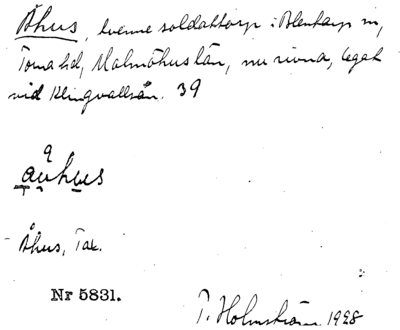 Åhus, tvenne soldattorp i Blentarp sn,
Torna hd, Malmöhus län, nu rivna, legat
vid Klingvallsån. 39
auhus
Åhus, Tax.
Nr 5831.
P. Holmström 1928